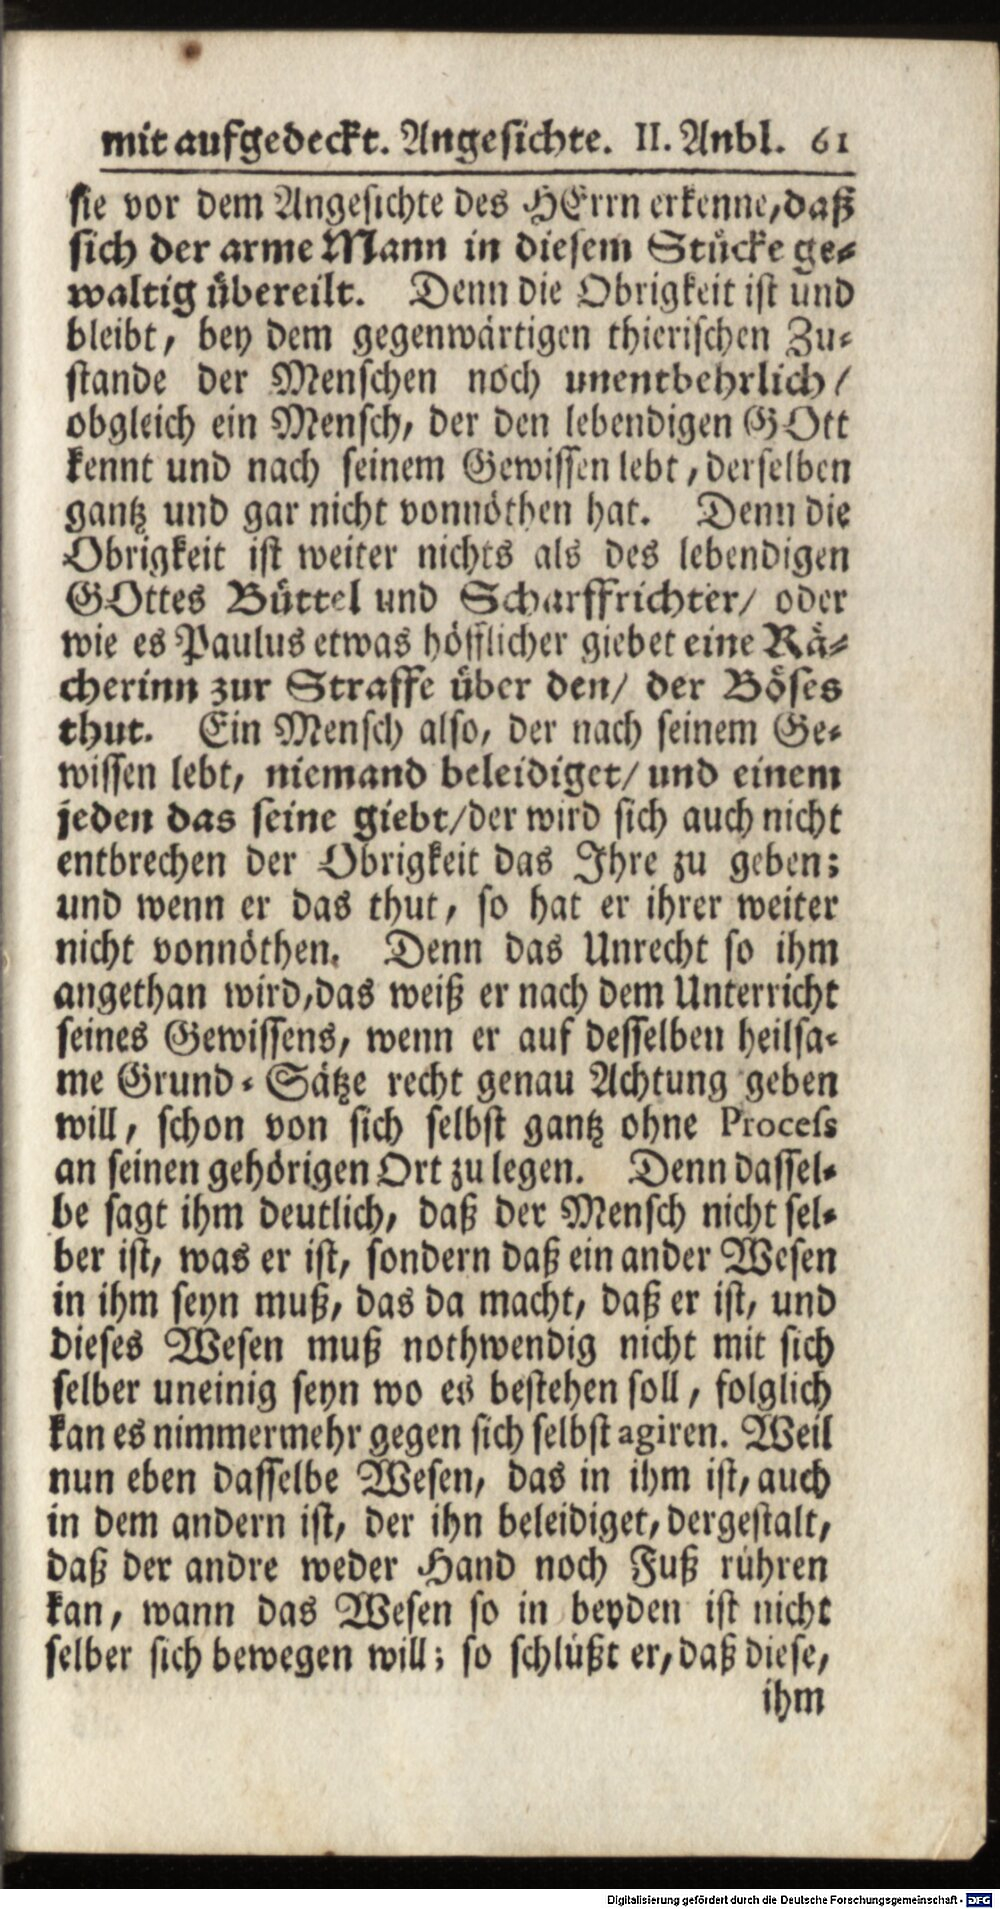 mit aufgedeckt. Angesichte. II. Anbl. 61
sie vor dem Angesichte des HErrn erkenne, daß
sich der arme Mann in diesem Stücke ge-
waltig übereilt. Denn die Obrigkeit ist und
bleibt, bey dem gegenwärtigen thierischen Zu-
stande der Menschen noch unentbehrlich/
obgleich ein Mensch, der den lebendigen GOtt
kennt und nach seinem Gewissen lebt, derselben
gantz und gar nicht vonnöthen hat. Denn die
Obrigkeit ist weiter nichts als des lebendigen
GOttes Büttel und Scharffrichter/ oder
wie es Paulus etwas höfflicher giebet eine Rä-
cherinn zur Straffe über den/ der Böses
thut. Ein Mensch also, der nach seinem Ge-
wissen lebt, niemand beleidiget/ und einem
jeden das seine giebt/ der wird sich auch nicht
entbrechen der Obrigkeit das Ihre zu geben;
und wenn er das thut, so hat er ihrer weiter
nicht vonnöthen. Denn das Unrecht so ihm
angethan wird, das weiß er nach dem Unterricht
seines Gewissens, wenn er auf desselben heilsa-
me Grund-Sätze recht genau Achtung geben
will, schon von sich selbst gantz ohne Process
an seinen gehörigen Ort zu legen. Denn dassel-
be sagt ihm deutlich, daß der Mensch nicht sel-
ber ist, was er ist, sondern daß ein ander Wesen
in ihm seyn muß, das da macht, daß er ist, und
dieses Wesen muß nothwendig nicht mit sich
selber uneinig seyn wo es bestehen soll, folglich
kan es nimmermehr gegen sich selbst agiren. Weil
nun eben dasselbe Wesen, das in ihm ist, auch
in dem andern ist, der ihn beleidiget, dergestalt,
daß der andre weder Hand noch Fuß rühren
kan, wann das Wesen so in beyden ist nicht
selber sich bewegen will; so schlüßt er, daß diese,
ihm
Digitalisierung gefördert durch die Deutsche Forschungsgemeinschaft - DFG